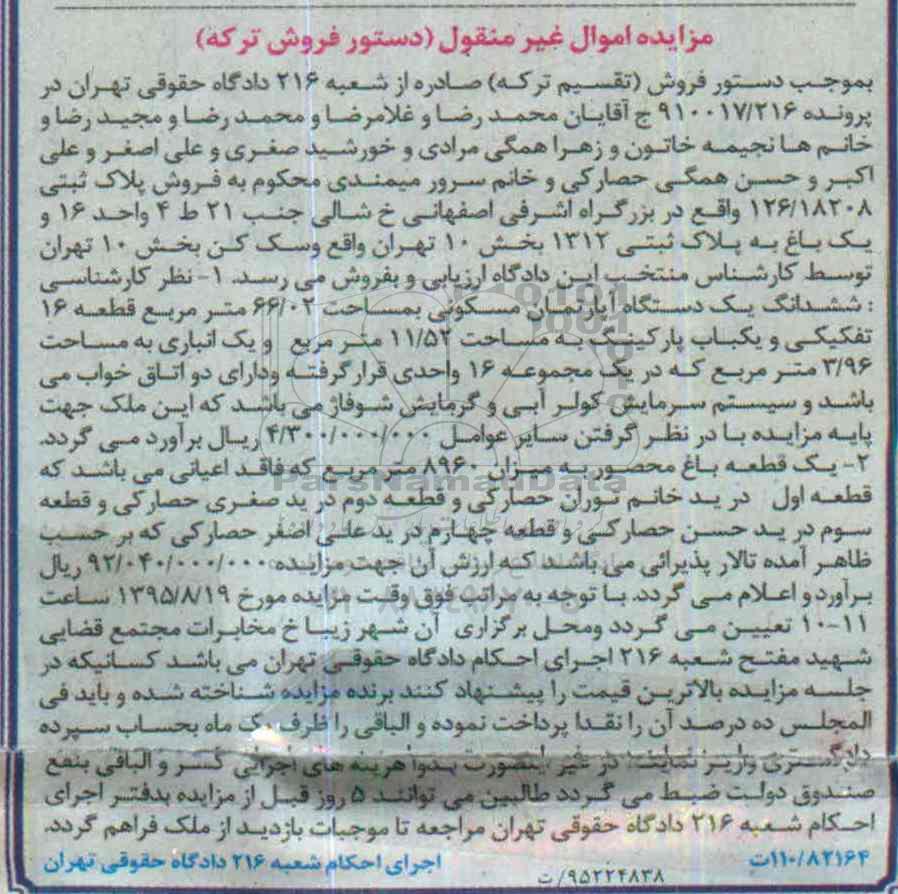 مزایده اموال غیر منقول (دستور فروش ترکه)
بموجب دستور فروش (تقسیم ترکه) صادره از شعبه ۲۱۶ دادگاه حقوقی تهران در
پرونده ۹۱۰۰۱۷/۲۱۶ ج آقایان محمد رضا و غلامرضا و محمد رضا و مجید رضا و
خانم ها نجیمه خاتون و زهرا همگی مرادی و خورشید صغری و علی اصغر و علی
اکبر و حسن همگی حصارکی و خانم سرور میمندی محکوم به فروش پلاک ثبتی
۱۲۶/۱۸۲۰۸ واقع در بزرگراه اشرفی اصفهانی خ شالی جنب ۲۱ ط ۴ واحد ۱۶ و
یک باغ به پلاک ثبتی ۱۳۱۲ بخش ۱۰ تهران واقع وسک کن بخش ۱۰ تهران
توسط کارشناس منتخب این دادگاه ارزیابی و بفروش می رسد. ۱- نظر کارشناسی
: ششدانگ یک دستگاه آپارتمان مسکونی بمساحت ۶۶/۰۲ متر مربع قطعه ۱۶
تفکیکی و یکباب پارکینگ به مساحت ۱۱/۵۲ متر مربع و یک انباری به مساحت
۳/۹۶ متر مربع که در یک مجموعه ۱۶ واحدی قرار گرفته ودارای دو اتاق خواب می
باشد و سیستم سرمایش کولر آبی و گرمایش شوفاژ می باشد که این ملک جهت
پایه مزایده با در نظر گرفتن سایر عوامل ۴/۳۰۰/۰۰۰/۰۰۰ ریال برآورد می گردد.
۲- یک قطعه باغ محصور به میزان ۸۹۶۰ متر مربع که فاقد اعیانی می باشد که
ParsNamadData
قطعه اول در ید خانم توران حصارکی و قطعه دوم در ید صغری حصارکی و قطعه
سوم در ید حسن حصارکی و قطعه چهارم در ید علی اصغر حصارکی که بر حسب
ظاهر آمده تالار پذیرائی می باشد که ارزش آن جهت مزایده ۹۲/۰۴۰/۰۰۰/۰۰۰ ریال
برآورد و اعلام می گردد. با توجه به مراتب فوق وقت مزایده مورخ ۱۳۹۵/۸/۱۹ ساعت
۱۰-۱۱ تعیین می گردد ومحل برگزاری آن شهر زیبا خ مخابرات مجتمع قضایی
شهید مفتح شعبه ۲۱۶ اجرای احکام دادگاه حقوقی تهران می باشد کسانیکه در
جلسه مزایده بالاترین قیمت را پیشنهاد کنند برنده مزایده شناخته شده و باید فی
المجلس ده درصد آن را نقدا پرداخت نموده و الباقی را ظرف یک ماه بحساب سپرده
دادگستری واریز نمایند در غیر اینصورت بدوا هزینه های اجرائی کسر و الباقی بنفع
صندوق دولت ضبط می گردد طالبین می توانند ۵ روز قبل از مزایده بدفتر اجرای
احکام شعبه ۲۱۶ دادگاه حقوقی تهران مراجعه تا موجبات بازدید از ملک فراهم گردد.
۱۱۰/۸۲۱۶۴ت اجرای احکام شعبه ۲۱۶ دادگاه حقوقی تهران
۹۵۲۲۴۸۳۸/ت